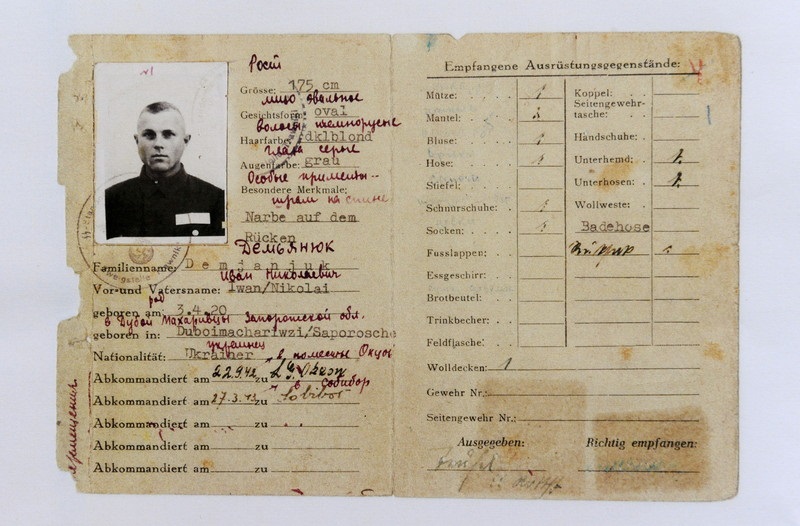 №1
Рост
Grösse: 175 cm
лицо овальное
Gesichtsform: oval
волосы темнорусые
Haarfarbe: dklblond
глаза серые
Augenfarbe: grau
Особые приметы--
Besondere Merkmale:
шрам на спине
Narbe auf dem
Rücken
ДЕМЬЯНЮК
Familienname: Demjanjuk
Иван Николаевич
Vor-und Vatersname: Iwan/Nikolai
род
geboren am: 3.4.20
в Дубой Махаривцы Запорожской обл.
geboren in: Duboimachariwzi/Saporosche
украинец
Nationalität: Ukrainer
в поместье Окцов
Abkommandiert am 22.9.42 zu L.G. Okzow
в Собибор
Abkommandiert am 27.3.43 zu Sobibor
Abkommandiert am zu
Abkommandiert am zu
Abkommandiert am zu
Empfangene Ausrüstungsgegenstände:
Mütze: 1
Mantel:
Bluse: 1
Hose: 1
Stiefel:
Schnürschuhe: 1
Socken: 1
Fusslappen:
Essgeschirr:
Brotbeutel:
Trinkbecher:
Feldflasche:
Wolldecken: 1
Gewehr Nr.:
Seitengewehr Nr.:
Koppel:
Seitengewehr-
tasche:
Handschuhe:
Unterhemd: 1.
Unterhosen: 1.
Wollweste:
Badehose
Ausgegeben:
Richtig empfangen: